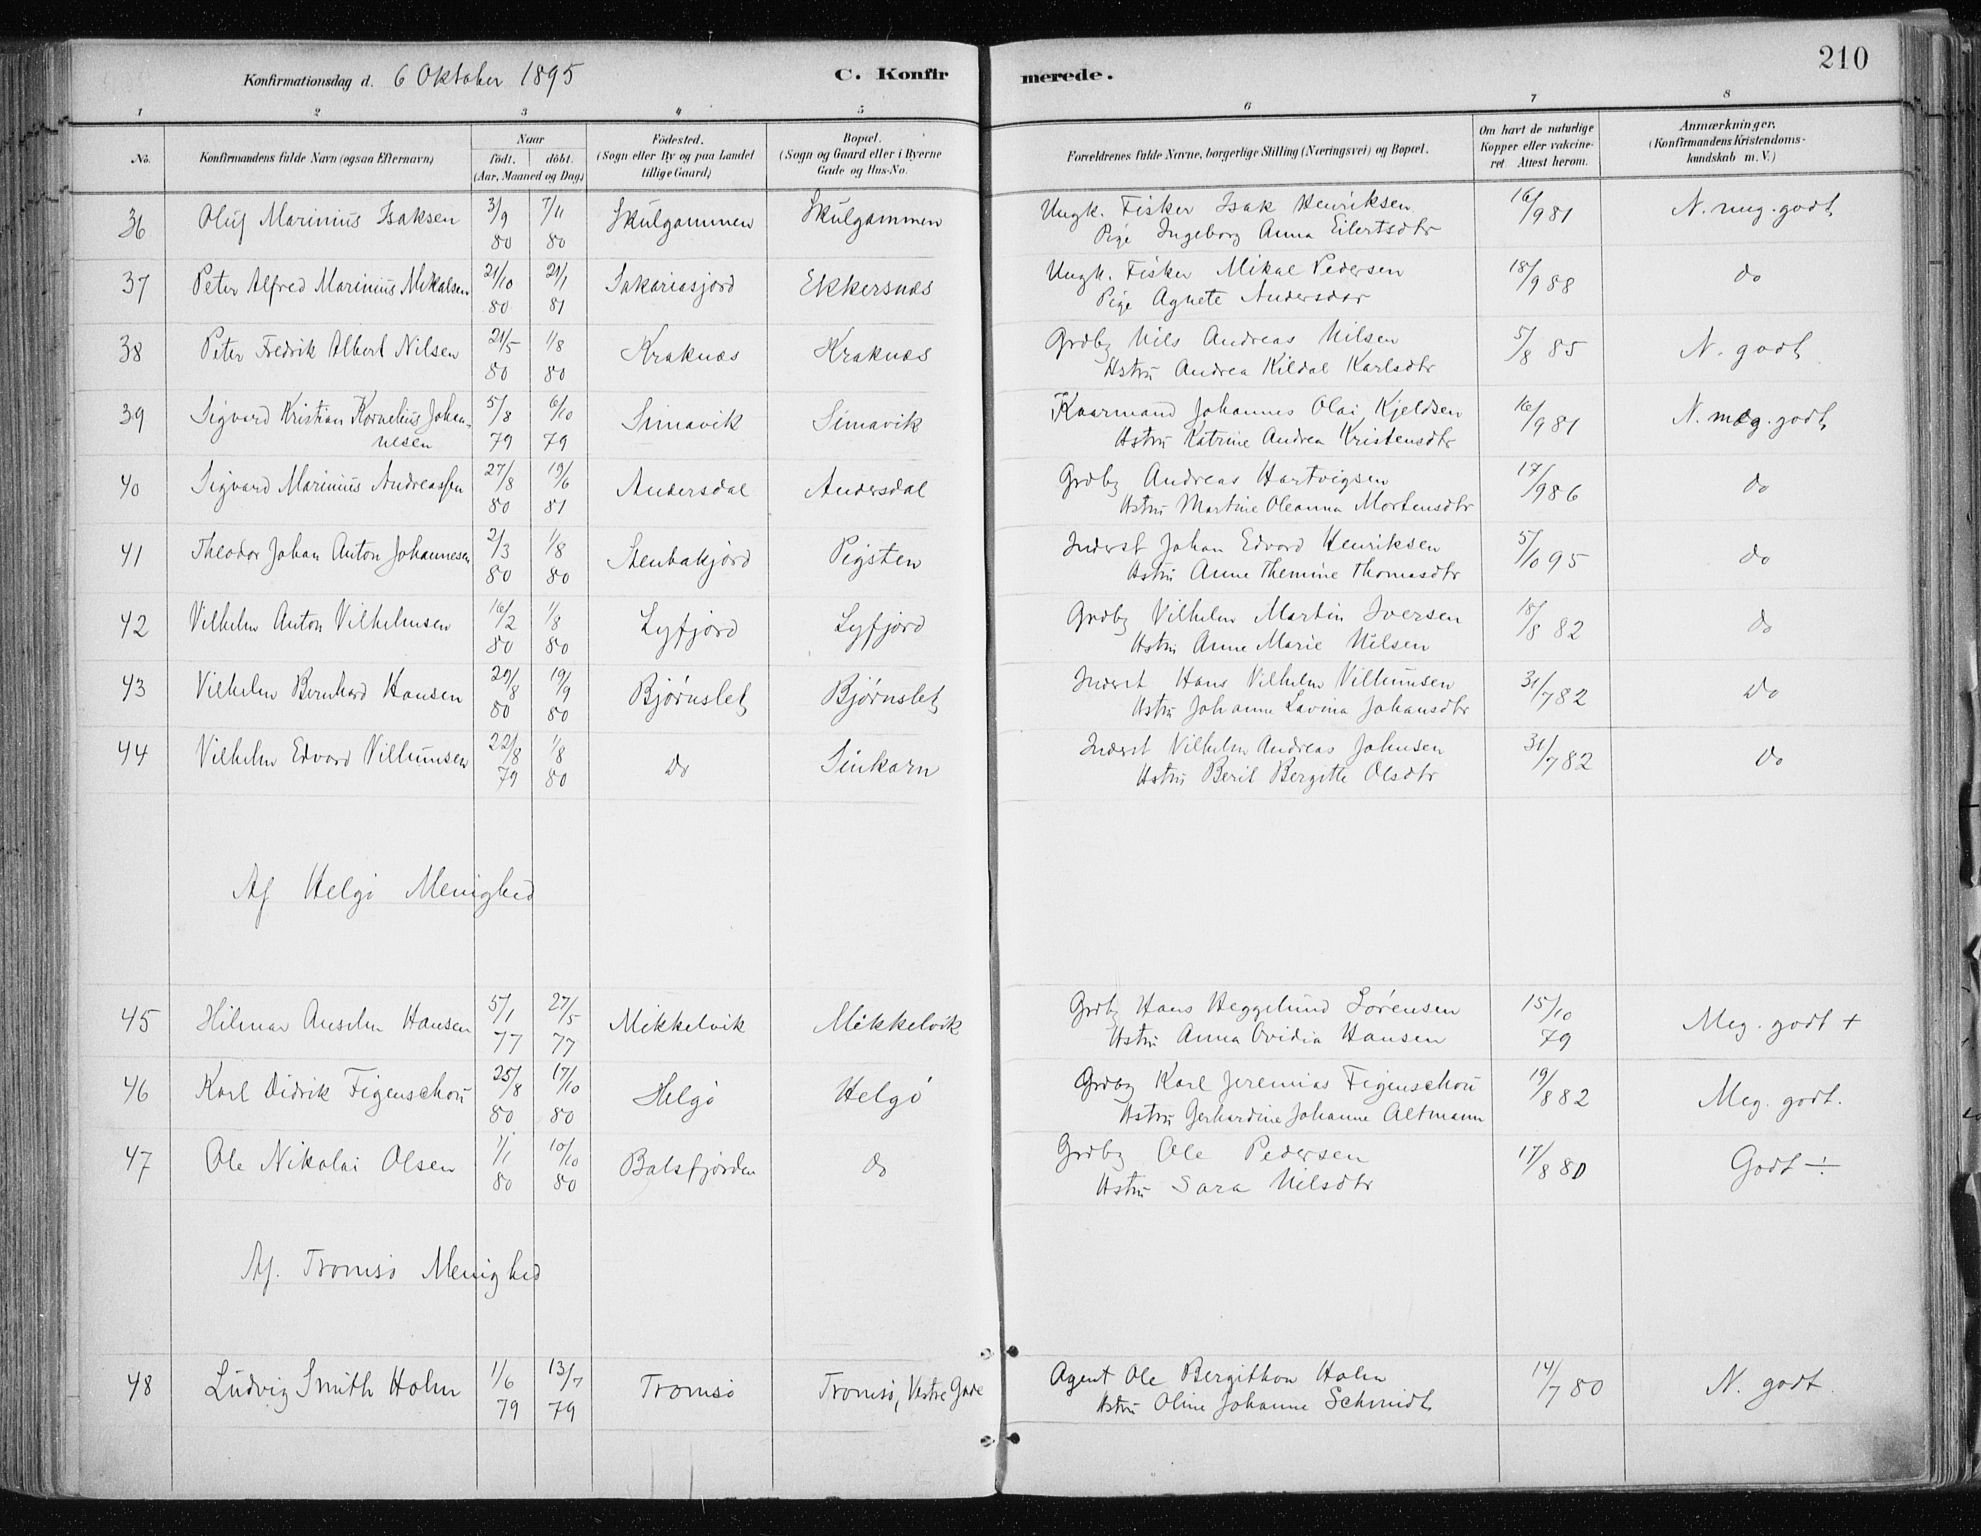 210
Konfirmationsdag d. 6 Oktober 1895 C. Konfir merede.
1 2 3 4 5 6 7 8
No. Konfirmandens fulde Navn (ogsaa Efternavn) Naar födt. döbt. (Aar, Maaned og Dag) Födested. (Sogn eller By og paa Landet tillige Gaard) Bopæl. (Sogn og Gaard eller i Byerne Gade og Hus-No. Forældrenes fulde Navne, borgerlige Stilling (Næringsvei) og Bopæl. Om havt de naturlige Kopper eller vakcineret. Attest herom. Anmærkninger. (Konfirmandens Kristendomskundskab m. V.)
36 Oluf Marinius Isaksen 3/9 80 7/11 80 Skulgammen Skulgammen Ungk. Fisker Isak Henriksen 16/9 81 N. meg. godt
Pige Ingeborg Anna Eilertsdtr
37 Peter Alfred Marinius Mikalsen 21/10 80 21/1 81 Sakariasjord Ekkersnæs Ungk. Fisker Mikal Pedersen 18/9 88 do
Pige Agnete Andersdtr
38 Peter Fredrik Albert Nilsen 21/5 80 1/8 80 Kraknæs Kraknæs Grdbg Nils Andreas Nilsen 5/8 85 N. godt
Hstru Andrea Kildal Karlsdtr
39 Sigvard Kristian Kornelius Johan- 5/8 79 6/10 79 Simavik Simavik Kaarmand Johannes Olai Kjeldsen 16/9 81 N. meg. godt
nesen Hstru Katrine Andrea Kristensdtr
40 Sigvard Marinius Andreassen 27/8 80 19/6 81 Andersdal Andersdal Grdbg Andreas Hartvigsen 17/9 86 do
Hstru Martine Oleanna Mortensdtr
41 Theodor Johan Anton Johannesen 2/3 80 1/8 80 Stenbakjord Pigsten Inderst Johan Edvard Henriksen 5/10 95 do
Hstru Anne Themine Thomasdtr
42 Vilhelm Anton Vilhelmsen 16/2 80 1/8 80 Lyfjord Lyfjord Grdbg Vilhelm Martin Iversen 18/8 82 do
Hstru Anne Marie Nilsen
43 Vilhelm Bernhard Hansen 29/8 80 19/9 80 Bjørnslet Bjørnslet Inderst Hans Vilhelm Villumsen 31/7 82 do
Hstru Johanne Lavina Johansdtr
44 Vilhelm Edvard Villumsen 22/8 79 1/8 80 do Sinkarn Inderst Vilhelm Andreas Johnsen 31/7 82 do
Hstru Beril Bergitte Olsdtr
Af Helgø Menighed
45 Hilmar Anselm Hansen 5/1 77 27/5 77 Mikkelvik Mikkelvik Grdbg Hans Heggelund Sørensen 15/10 79 Meg. godt +
Hstru Anna Ovidia Hansen
46 Karl Didrik Figenschou 25/8 80 17/10 80 Helgø Helgø Grdbg Karl Jeremias Figenschou 19/8 82 Meg. godt.
Hstru Gerhardine Johanne Altmann
47 Ole Nikolai Olsen 1/1 80 10/10 80 Balsfjorden do Grdbg Ole Pedersen 17/8 80 Godt ÷
Hstru Sara Nilsdtr
Af. Tromsø Menighed
48 Ludvig Smith Holm 1/6 79 13/7 79 Tromsø Tromsø, Vestre Gade Agent Ole Bergithon Holm 14/7 80 N. godt.
Hstru Oline Johanne Schmidt